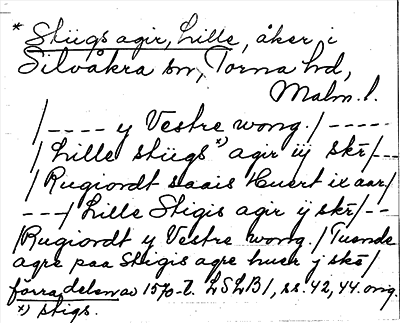 * Stiigs agir, Lille, åker, i
Silvåkra sn, Torna hd,
Malm. l.
/---- y Vestre wong./-----
/Lille stiigs *) agir iij skr/---
/Rugiordt saais Huert ix aar/
---/Lille Stigis agir ij skr/--
/Rugiordt y Vestre wong./Tuende
agre paa Stigis agre huer j skr/
förra delen av 1570-t. LSLB 1, ss. 42, 44. orig.
*) stigs.